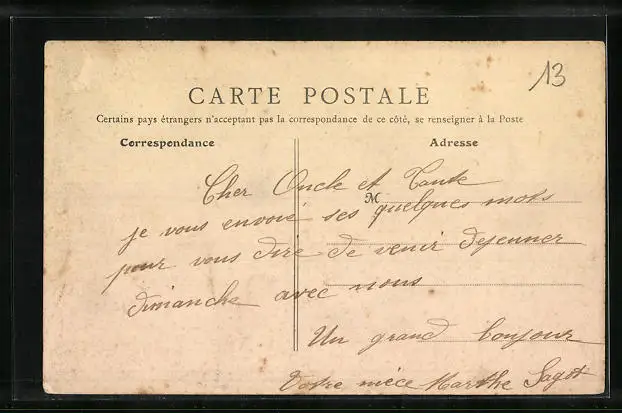 13
CARTE POSTALE
Certains pays étrangers n'acceptant pas la correspondance de ce côté, se renseigner à la Poste
Correspondance
Adresse
M
Cher Oncle et Tante
je vous envoie ses quelques mots
pour vous dire de venir dejeuner
dimanche avec nous
Un grand bonjour
Votre niéce Marthe Sagot